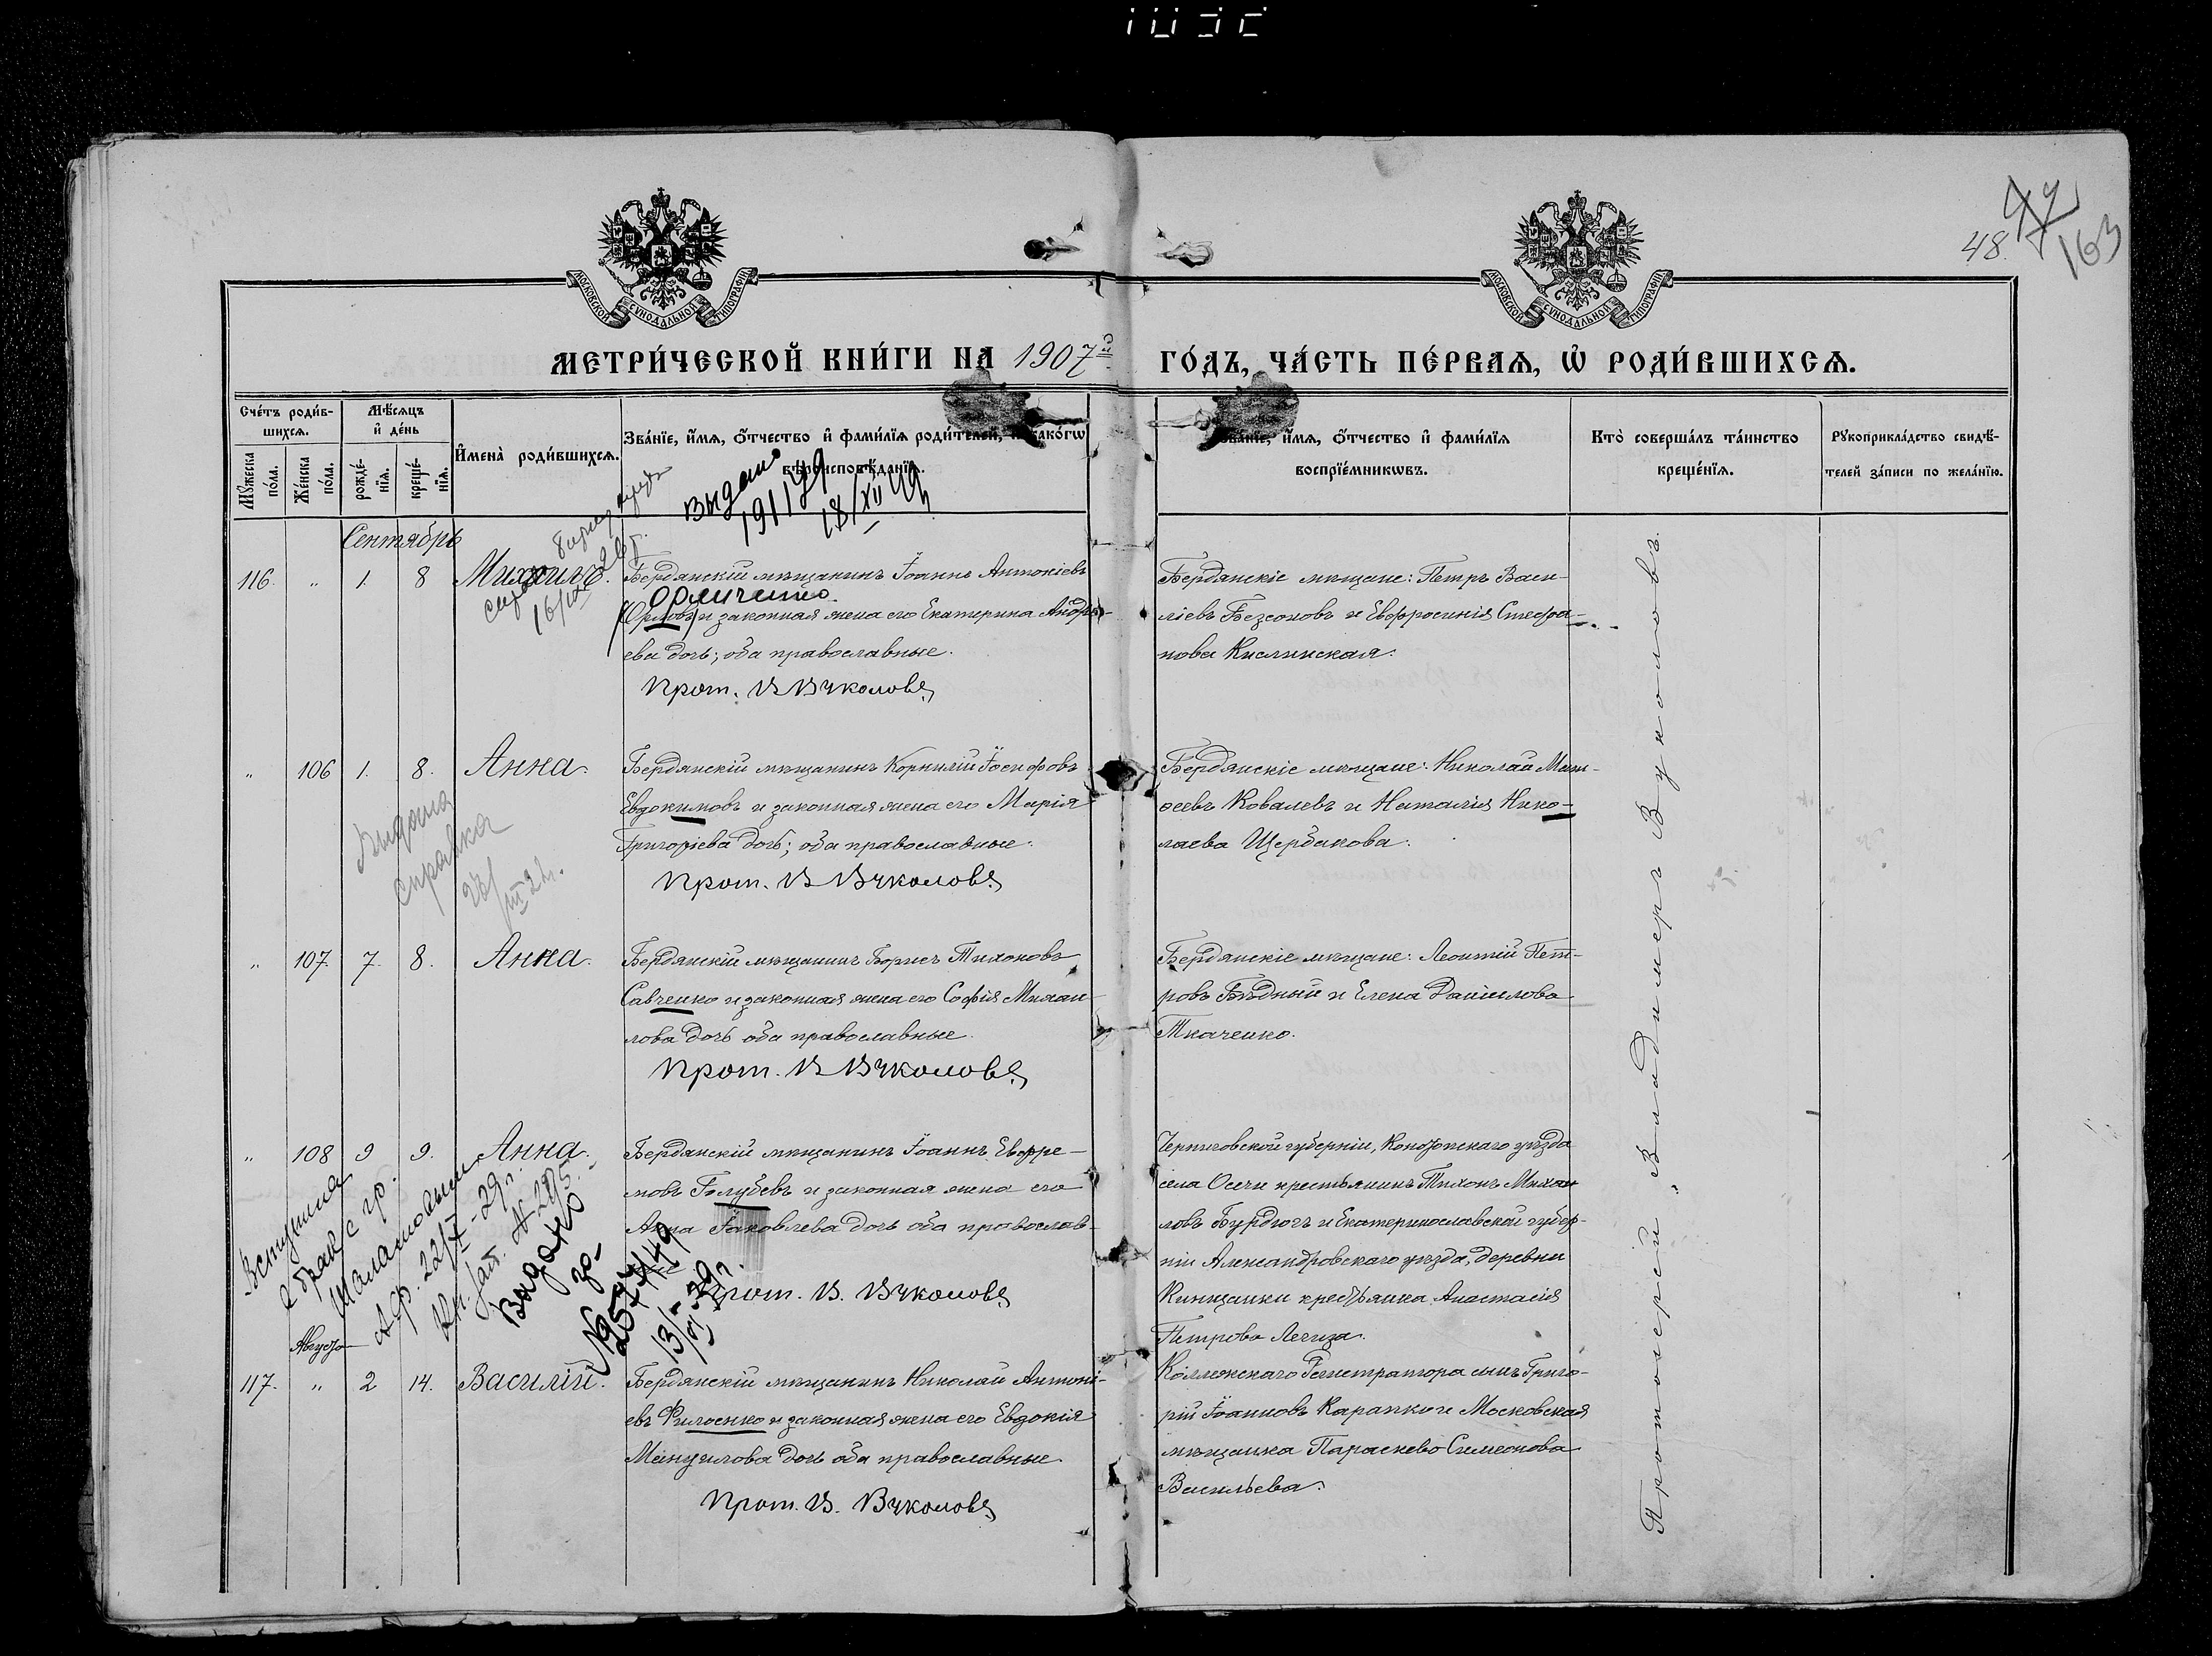 48.
47
163
МОСКОВСКОЙ СѴНОДАЛЬНОЙ ТИПОГРАФІИ
МОСКОВСКОЙ СѴНОДАЛЬНОЙ ТИПОГРАФІИ
МЕТРИ́ЧЕСКОЙ КНИ́ГИ НА 1907й ГО́ДЪ, ЧА́СТЬ ПЕ́РВАѦ, Ѡ҆ РОДИ́ВШИХСѦ.
Сче́тъ роди́в-
шихсѧ.
Мꙋ́жеска по́ла.
Же́нска по́ла.
Мѣ́сѧцъ
и҆ де́нь
рожде́-
нїѧ.
креще́-
нїѧ.
И҆мена̀ роди́вшихсѧ.
Зва́нїе, и҆́мѧ, ѻ҆́тчество и҆ фами́лїѧ роди́телей, и҆ како́гѡ
вѣроисповѣ́данїѧ.
Зва́нїе, и҆́мѧ, ѻ҆́тчество и҆ фами́лїѧ
воспрїе́мникѡвъ.
Кто̀ соверша́лъ та́инство
креще́нїѧ.
Рꙋкоприкла́дство свидѣ́-
телей за́писи по жела́нїю.
Выдано
18/XII 49
Сентябрь
116. " 1. 8 Михаилъ.
16/IX 26 г.
Бердянскій мѣщанинъ Іоаннъ Антоніевъ
Орличенко
(Орловъ) и законная жена его Екатерина Андре-
ева дочь; оба православные.
Прот. В Вуколовъ
Бердянскіе мѣщане: Петръ Васи-
ліевъ Безсоновъ и Евфросинія Стефа-
нова Кислинская.
" 106 1. 8. Анна.
Выдана
справка
Бердянскій мѣщанинъ Корнилій Іосифовъ
Евдокимовъ и законная жена его Марія
Григоріева дочь; оба православные.
Прот. В Вуколовъ
Бердянскіе мѣщане: Николай Мат-
ѳеевъ Ковалевъ и Наталія Нико-
лаева Щербакова.
" 107. 7. 8. Анна.
Бердянскій мѣщанинъ Борисъ Тихоновъ
Савченко и законная жена его Софія Михаи-
лова дочь оба православные.
Прот. В Вуколовъ
Бердянскіе мѣщане: Леонтій Пет-
ровъ Бѣдный и Елена Даніилова
Ткаченко.
" 108 9 9. Анна.
Вступила
в брак с гр.
22/X-29 г.
Выдано
Бердянскій мѣщанинъ Іоаннъ Евфре-
мовъ Голубевъ и законная жена его
Анна Іаковлева дочь оба православ-
Прот. В. Вуколовъ
Черниговской губерніи, Конотопскаго уѣзда
села Осечи крестьянинъ Тихонъ Михаи
ловъ Бурдюгъ и Екатеринославской губер-
ніи Александровскаго уѣзда, деревни
крестьянка Анастасія
Петрова
Августъ
117. " 2 14. Василій.
Бердянскій мѣщанинъ Николай Антоні-
евъ Филоенко и законная жена его Евдокія
Мануилова дочь оба православные.
Прот. В. Вуколовъ
Коллежскаго Регистратора сынъ Григо-
рій Іоанновъ Карапко и Московская
мѣщанка Параскева Симеонова
Васильева.
Протоіерей Владимеръ Вуколовъ.